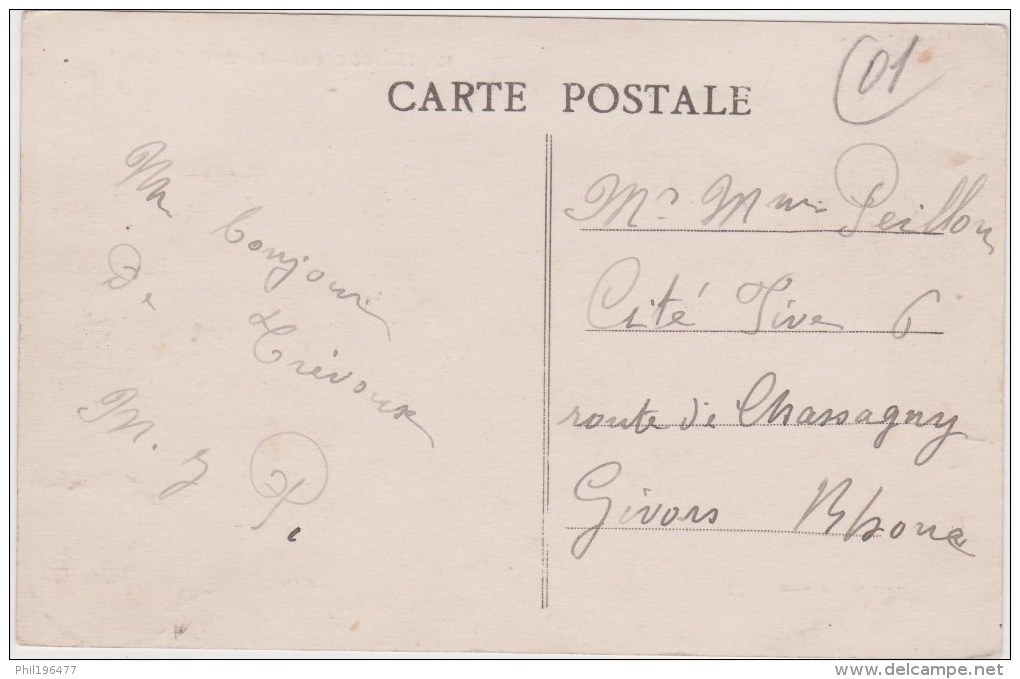 CARTE POSTALE
01
Un bonjour
De Trévoux
M. J P.
Mr Mme Peillon
Cité Fives 6
route de Chassagny
Givors Rhone
Phil196477
www.delcampe.net